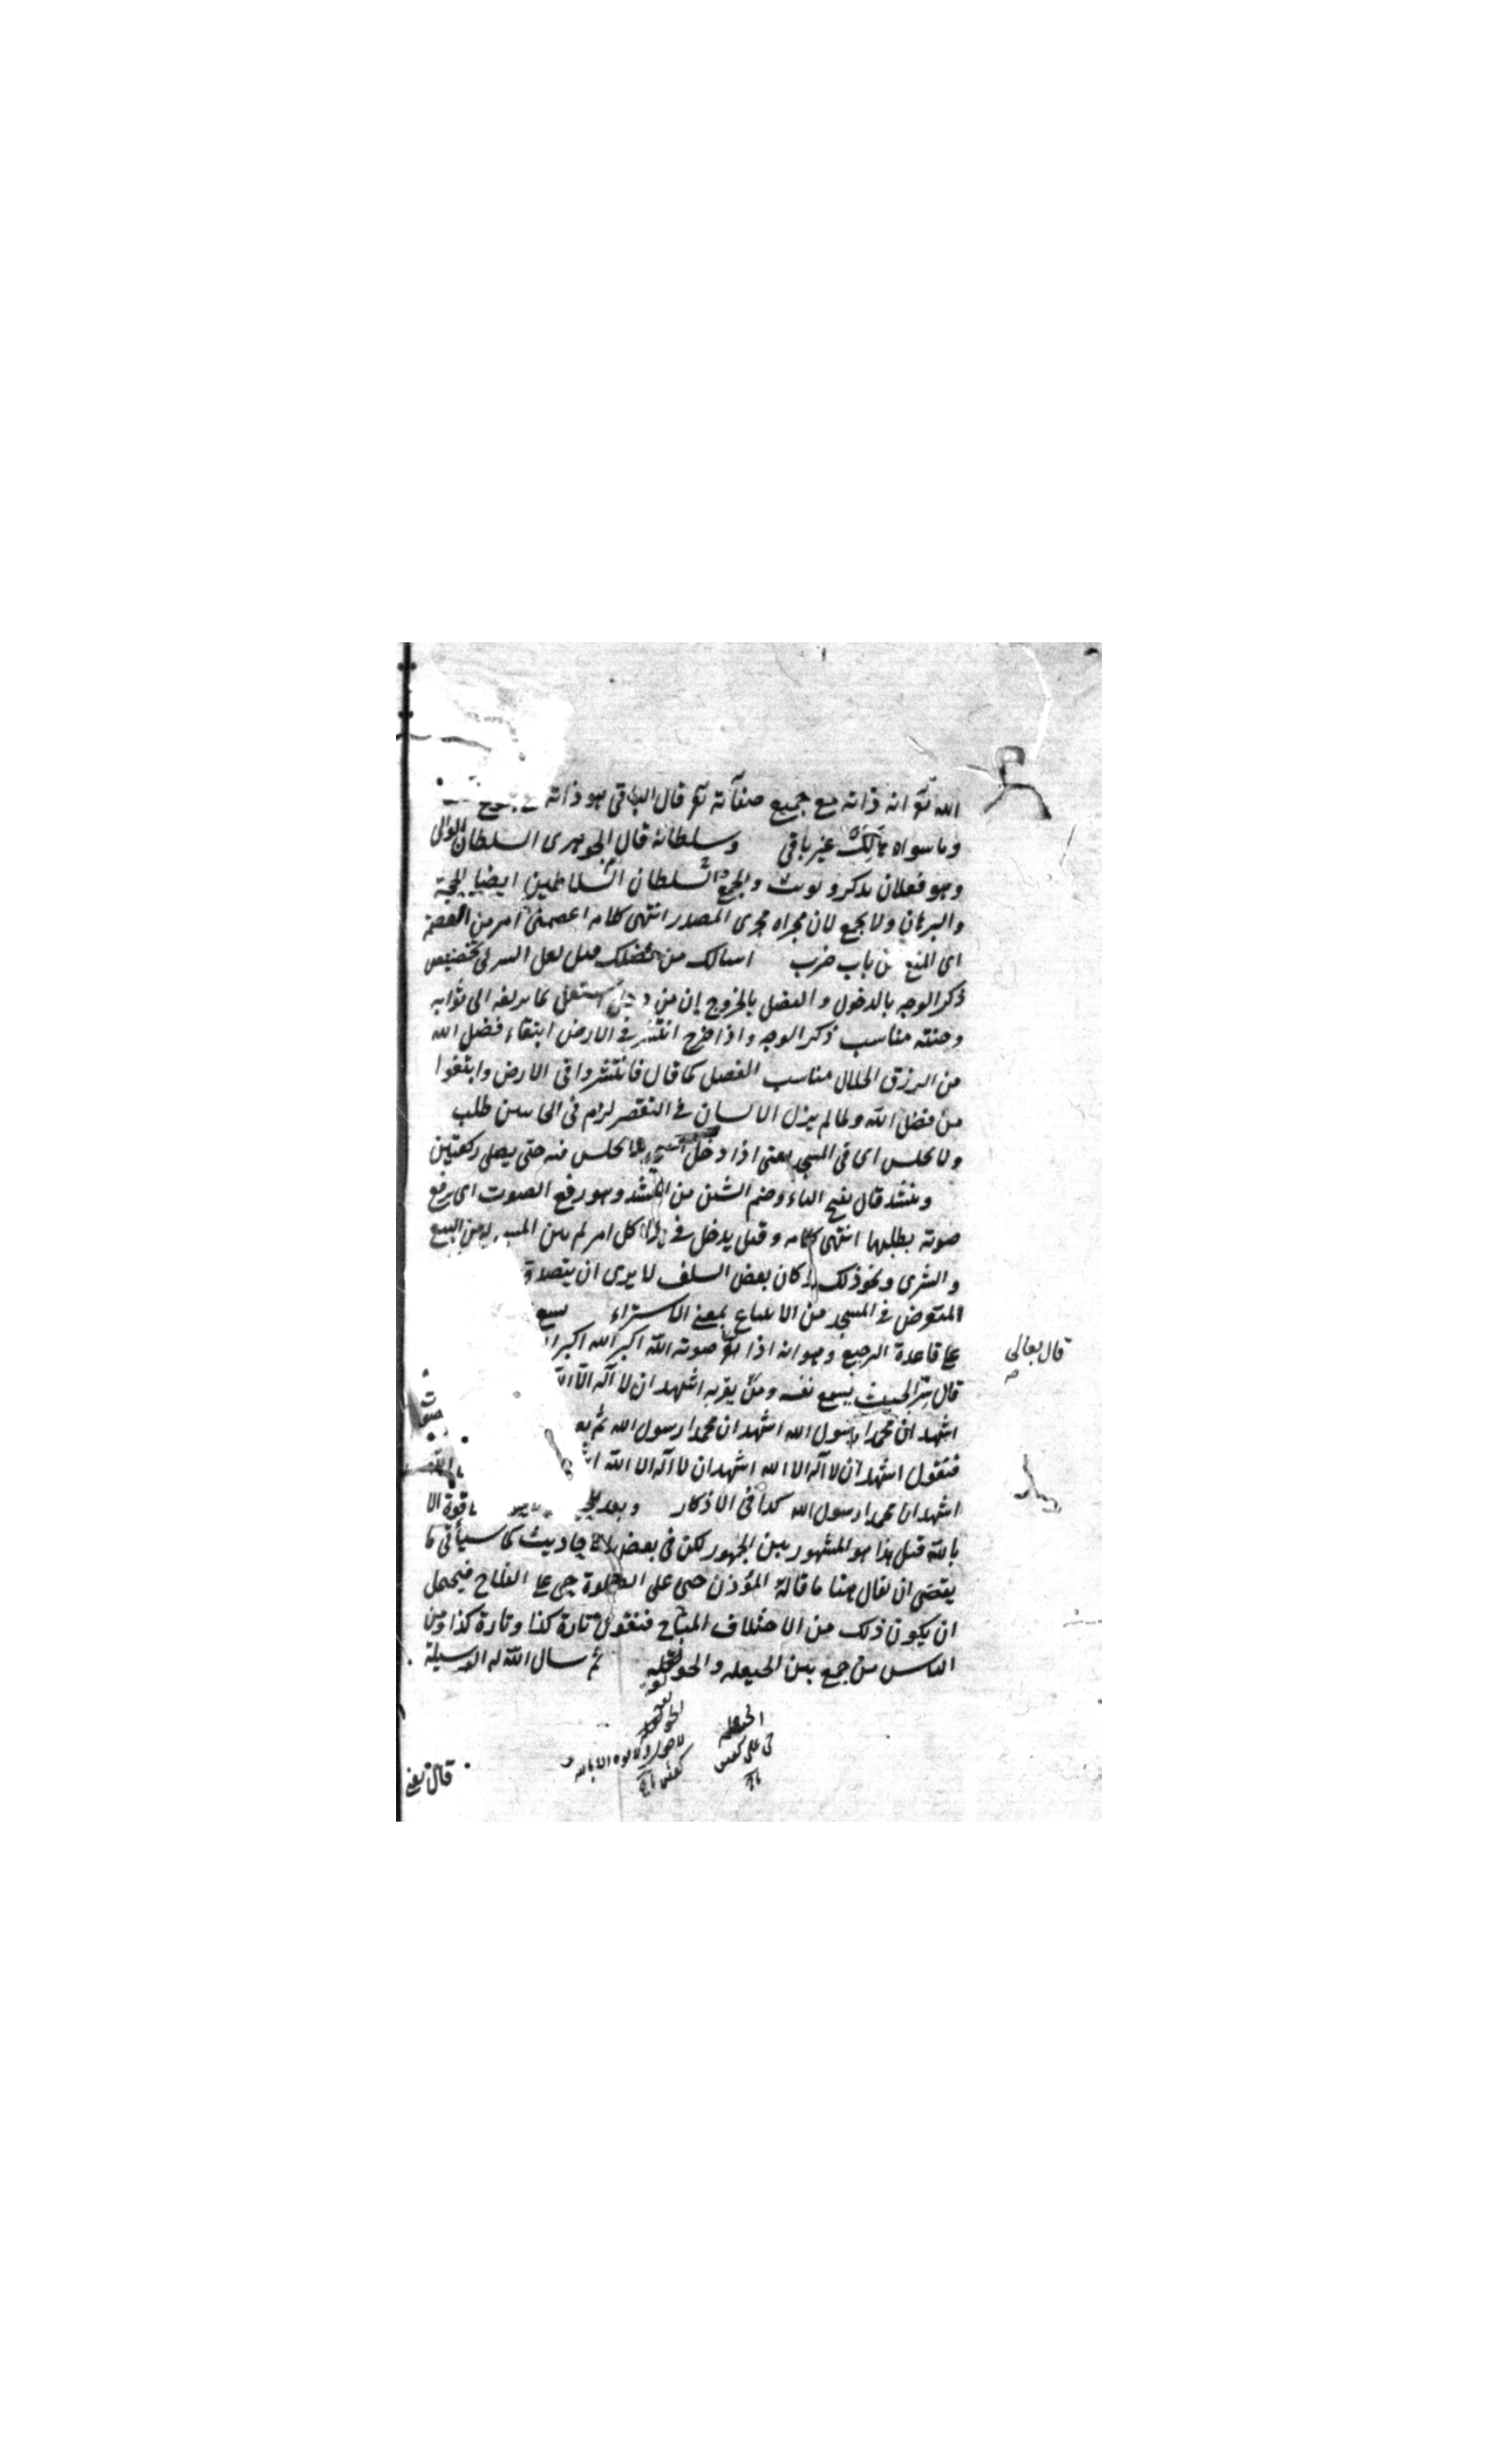 الله تع انه ذاته مع جميع صفاته تع قال الباقي هو ذاته
وما سواه هالك غير باقي وسلطانه قال الجوهرى السلطان الوالى
وهو فعلان يذكر ويونث والجمع السلاطين السلطان ايضا الحجة
والبرهان ولا يجمع لان مجراه مجرى المصدر انتهى كلامه اعصمنى امر من العصمة
اى المنع من باب ضرب اسالك من فضلك قيل لعل السر فى تخصيص
ذكر الوجه بالدخول والفضل بالخروج ان من دخل اشتغل بما يزلفه الى ثوابه
وجنته مناسب ذكر الوجه واذا خرج انتشر فى الارض ابتغاء فضل الله
من الرزق الحلال مناسب الفضل كما قال فانتشروا فى الارض وابتغوا
من فضل الله ولما لم يزل الانسان فى التقصر لزم فى الحالين طلب
ولا يجلس اى فى المسجد يعنى اذا دخل المسجد لا يجلس فيه حتى يصلى ركعتين
وينشد قال بفتح الياء وضم الشين من النشد وهو رفع الصوت اى يرفع
صوته بطلبها انتهى كلامه وقيل يدخل فى هذا كل امر لم يبن المسجد له من البيع
والشرى ونحو ذلك وكان بعض السلف لا يرى ان يتصدق
المتعرض فى المسجد من الابتياع بمعنى الاستراء
على قاعدة الرجيع وهو انه اذا صوته الله اكبر الله اكبر
قال سرا بحيث يسمع نفسه ومن يقربه اشهد ان لا اله الا الله
اشهد ان محمدا رسول الله اشهد ان محمدا رسول الله ثم
فيقول اشهد ان لا اله الا الله اشهد ان لا اله الا الله
اشهد ان محمدا رسول الله كذا فى الاذكار وبعد قوة الا
بالله قيل هذا هو المشهور بين الجمهور لكن فى بعض الاحاديث كما سيأتى ما
يقتضى ان يقال هنا ما قاله المؤذن حى على الصلوة حى على الفلاح فيحتمل
ان يكون ذلك من الاختلاف المباح فيقول تارة كذا وتارة كذا ومن
الناس من جمع بين الحيعله والحوقله ثم سال الله له الوسيلة
قال تعالى
الحيعله
حى على كفتن
لا حول ولا قوه الا بالله
كفتن
قال يعنى